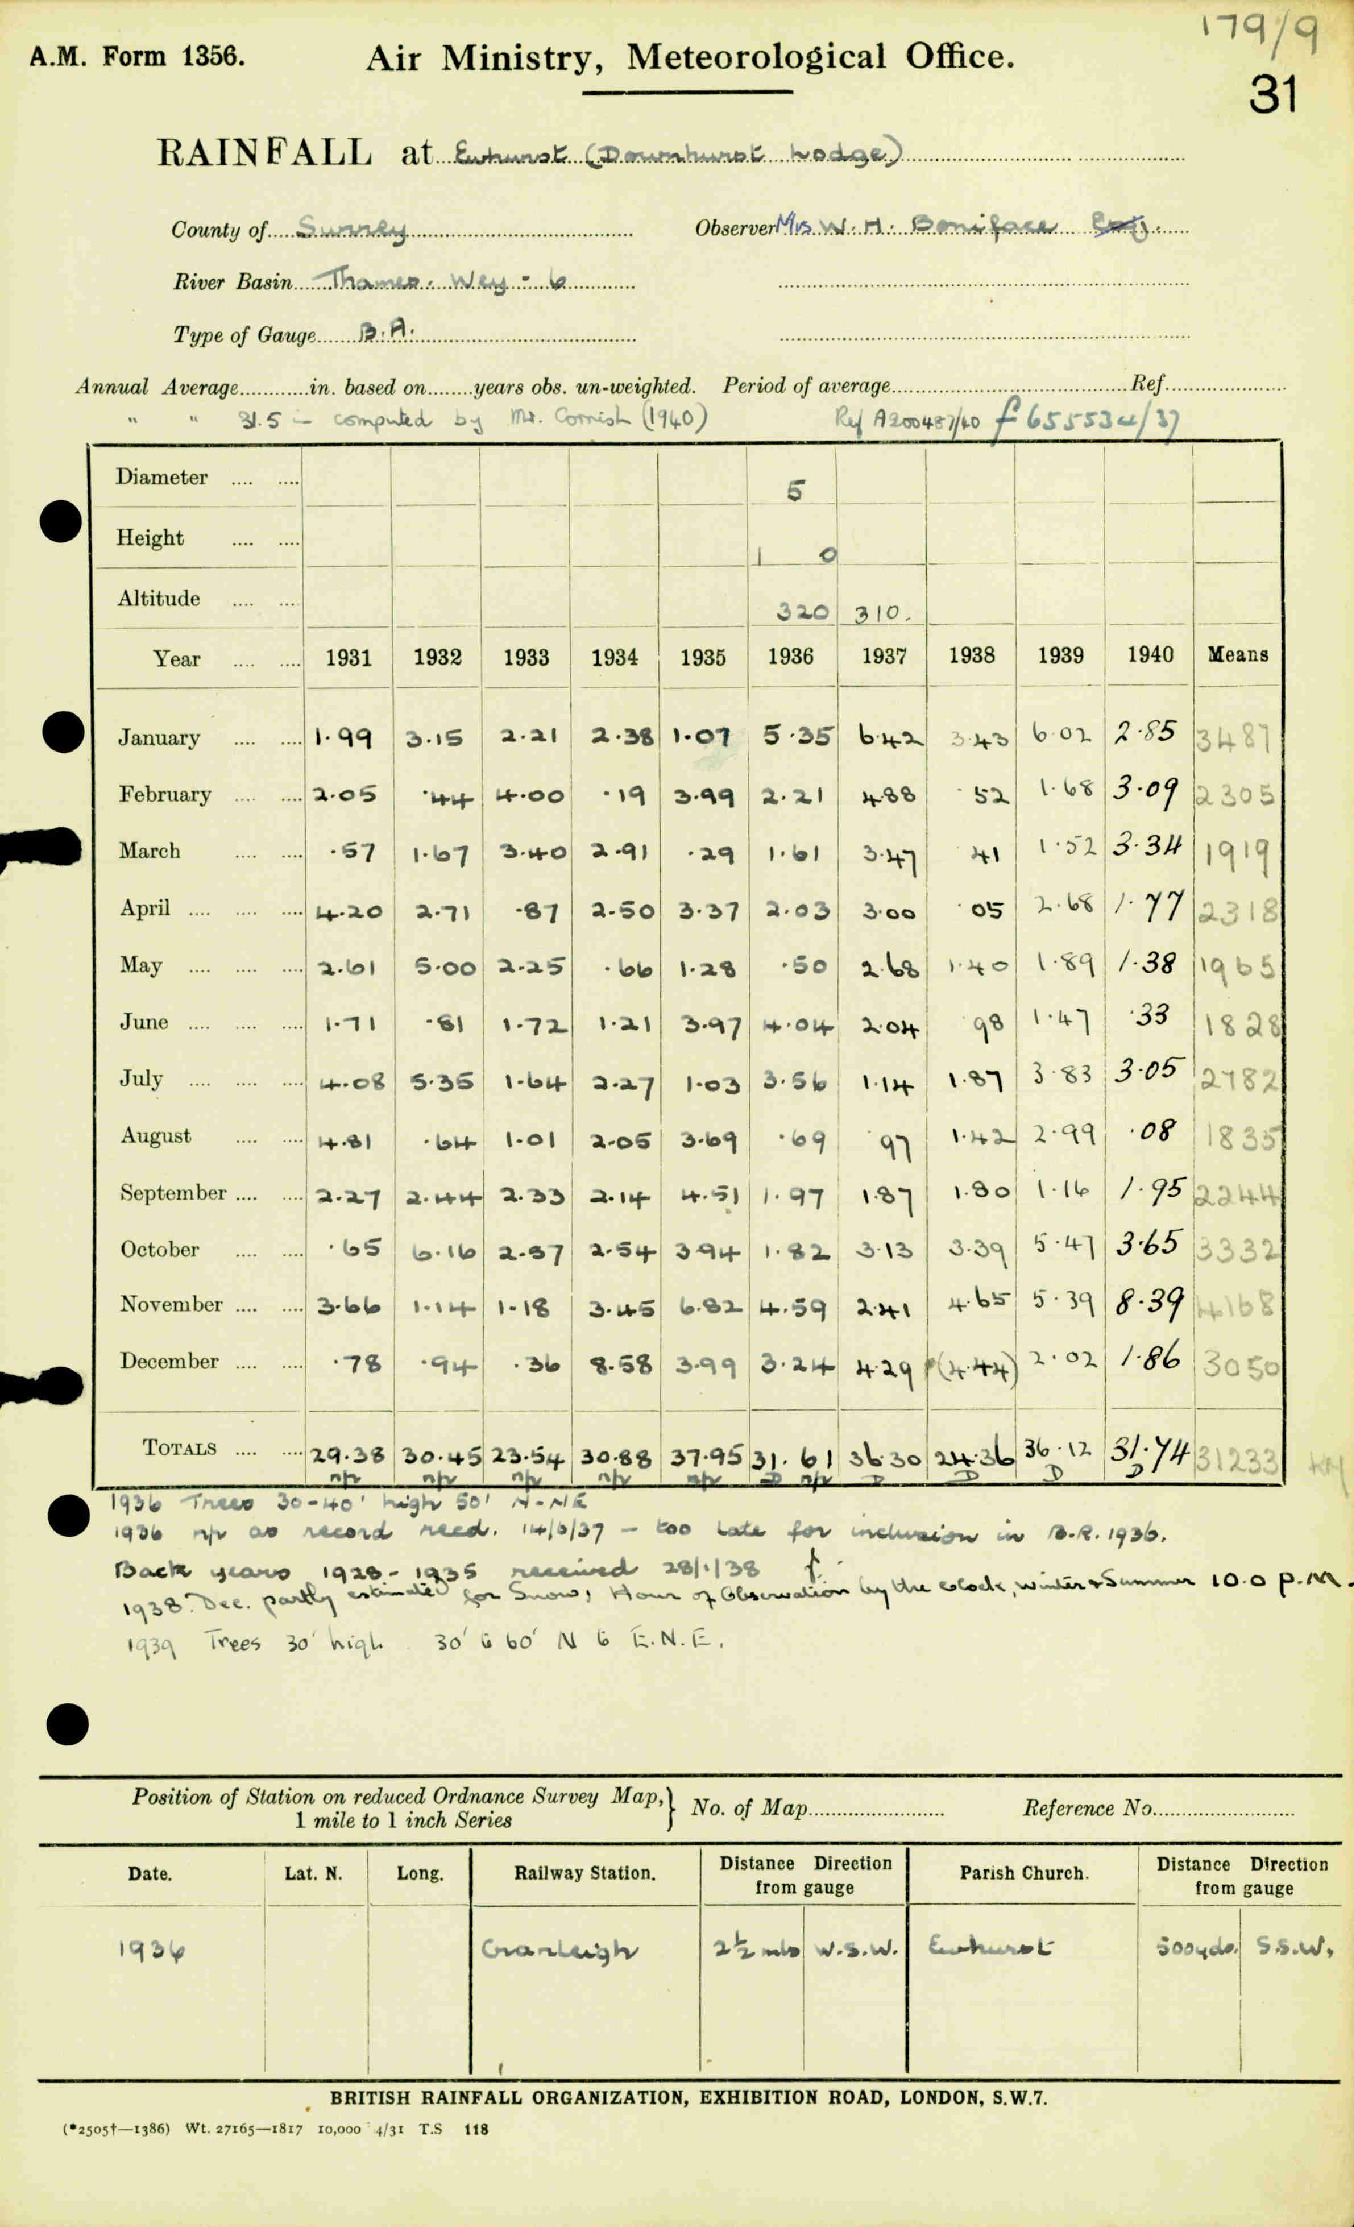 179/9
A.M. Form 1356. Air Ministry, Meteorological Office.
31
RAINFALL at Ewhurst (Downhurst Lodge)
County of Surrey Observer Mrs W. H. Boniface Esq.
River Basin Thames. Wey - 6
Type of Gauge B.A.
Annual Average in. based on years obs. un-weighted. Period of average Ref.
" " 31.5 in computed by Mr. Cornish (1940) Ref A200487/40 f 655534/37
Diameter 5
Height 1 0
Altitude 320 310.
Year 1931 1932 1933 1934 1935 1936 1937 1938 1939 1940 Means
January 1.99 3.15 2.21 2.38 1.07 5.35 6.42 3.43 6.02 2.85 3487
February 2.05 .44 4.00 .19 3.99 2.21 4.88 .52 1.68 3.09 2305
March .57 1.67 3.40 2.91 .29 1.61 3.47 41 1.52 3.34 1919
April 4.20 2.71 .87 2.50 3.37 2.03 3.00 .05 2.68 1.77 2318
May 2.61 5.00 2.25 .66 1.28 .50 2.68 1.40 1.89 1.38 1965
June 1.71 .81 1.72 1.21 3.97 4.04 2.04 98 1.47 .33 1828
July 4.08 5.35 1.64 2.27 1.03 3.56 1.14 1.87 3.83 3.05 2782
August 4.81 .64 1.01 2.05 3.69 .69 97 1.42 2.99 .08 1835
September 2.27 2.44 2.33 2.14 4.51 1.97 1.87 1.80 1.16 1.95 2244
October .65 6.16 2.57 2.54 3.94 1.82 3.13 3.39 5.47 3.65 3332
November 3.66 1.14 1.18 3.45 6.82 4.59 2.41 4.65 5.39 8.39 4168
December .78 .94 .36 8.58 3.99 3.24 4.29 (4.44) 2.02 1.86 3050
TOTALS 29.38 30.45 23.54 30.88 37.95 31.61 36.30 24.36 36.12 31.74 31233
n/r n/r n/r n/r n/r D n/r D D D D
1936 Trees 30-40' high 50' N-NE
1936 n/r as record recd. 14/6/37 - too late for inclusion in B.R. 1936.
Back years 1928-1935 received 28/1/38 f.
1938. Dec. partly estimated for Snow, Hour of Observation by the clock, winter & Summer 10.0 P.M.
1939 Trees 30' high 30' to 60' N to E.N.E.
Position of Station on reduced Ordnance Survey Map, } No. of Map Reference No.
1 mile to 1 inch Series
Date. Lat. N. Long. Railway Station. Distance Direction from gauge Parish Church. Distance Direction from gauge
1936 Cranleigh 2½ mls W.S.W. Ewhurst 500yds. S.S.W.
BRITISH RAINFALL ORGANIZATION, EXHIBITION ROAD, LONDON, S.W.7.
(*2505†—1386) Wt. 27165—1817 10,000 4/31 T.S 118